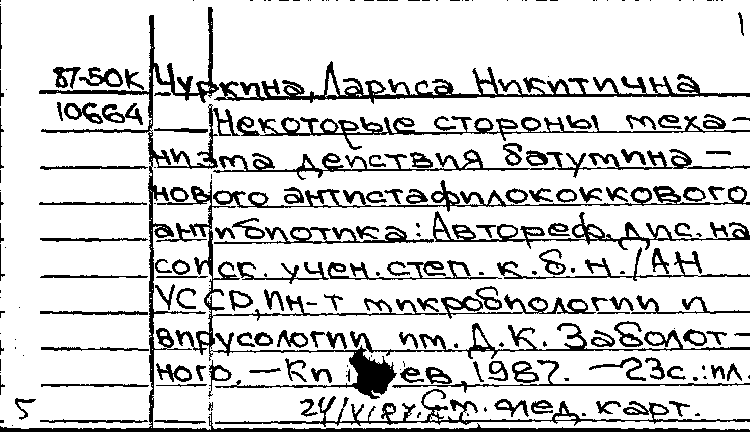 1
87-50К Чуркина, Лариса Никитична
10664 Некоторые стороны меха-
низма действия батумина -
нового антистафилококкового
антибиотика: Автореф. дис. на
соиск. учен. степ. к. б. н. /АН
УССР, Ин-т микробиологии и
вирусологии им. Д. К. Заболот-
ного. - Ки ев, 1987. - 23с.: ил.
5 См. след. карт.